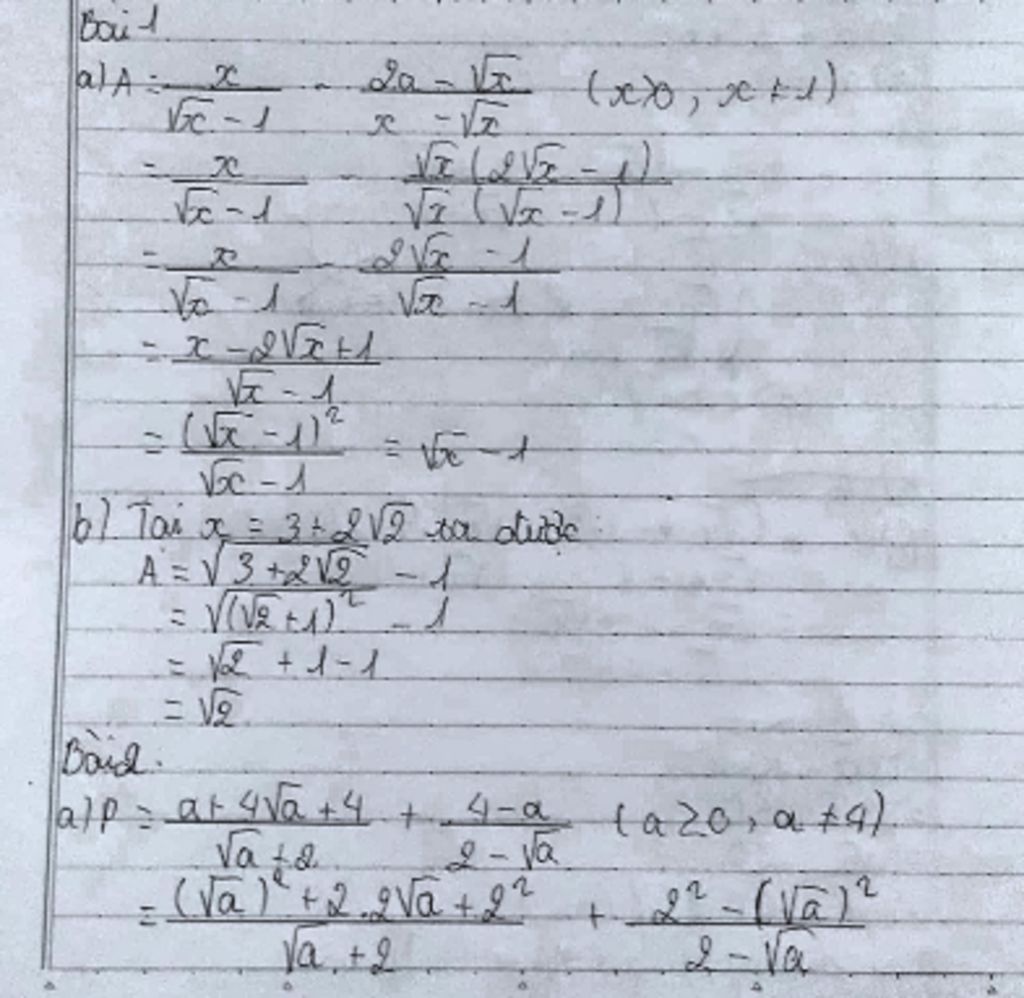 Bài 1
a) A = x/(√x - 1) - (2a - √x)/(x - √x) (x>0, x ≠ 1)
= x/(√x - 1) - √x(2√x - 1)/(√x(√x - 1))
= x/(√x - 1) - (2√x - 1)/(√x - 1)
= (x - 2√x + 1)/(√x - 1)
= (√x - 1)²/(√x - 1) = √x - 1
b) Tại x = 3 + 2√2 ta được:
A = √(3 + 2√2) - 1
= √((√2 + 1)²) - 1
= √2 + 1 - 1
= √2
Bài 2.
a) P = (a + 4√a + 4)/(√a + 2) + (4 - a)/(2 - √a) (a ≥ 0, a ≠ 4)
= ((√a)² + 2.2√a + 2²)/(√a + 2) + (2² - (√a)²)/(2 - √a)